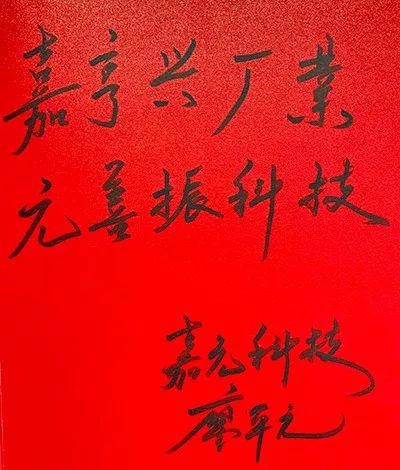 嘉亨兴广業
元善振科技
嘉元科技
廖平元